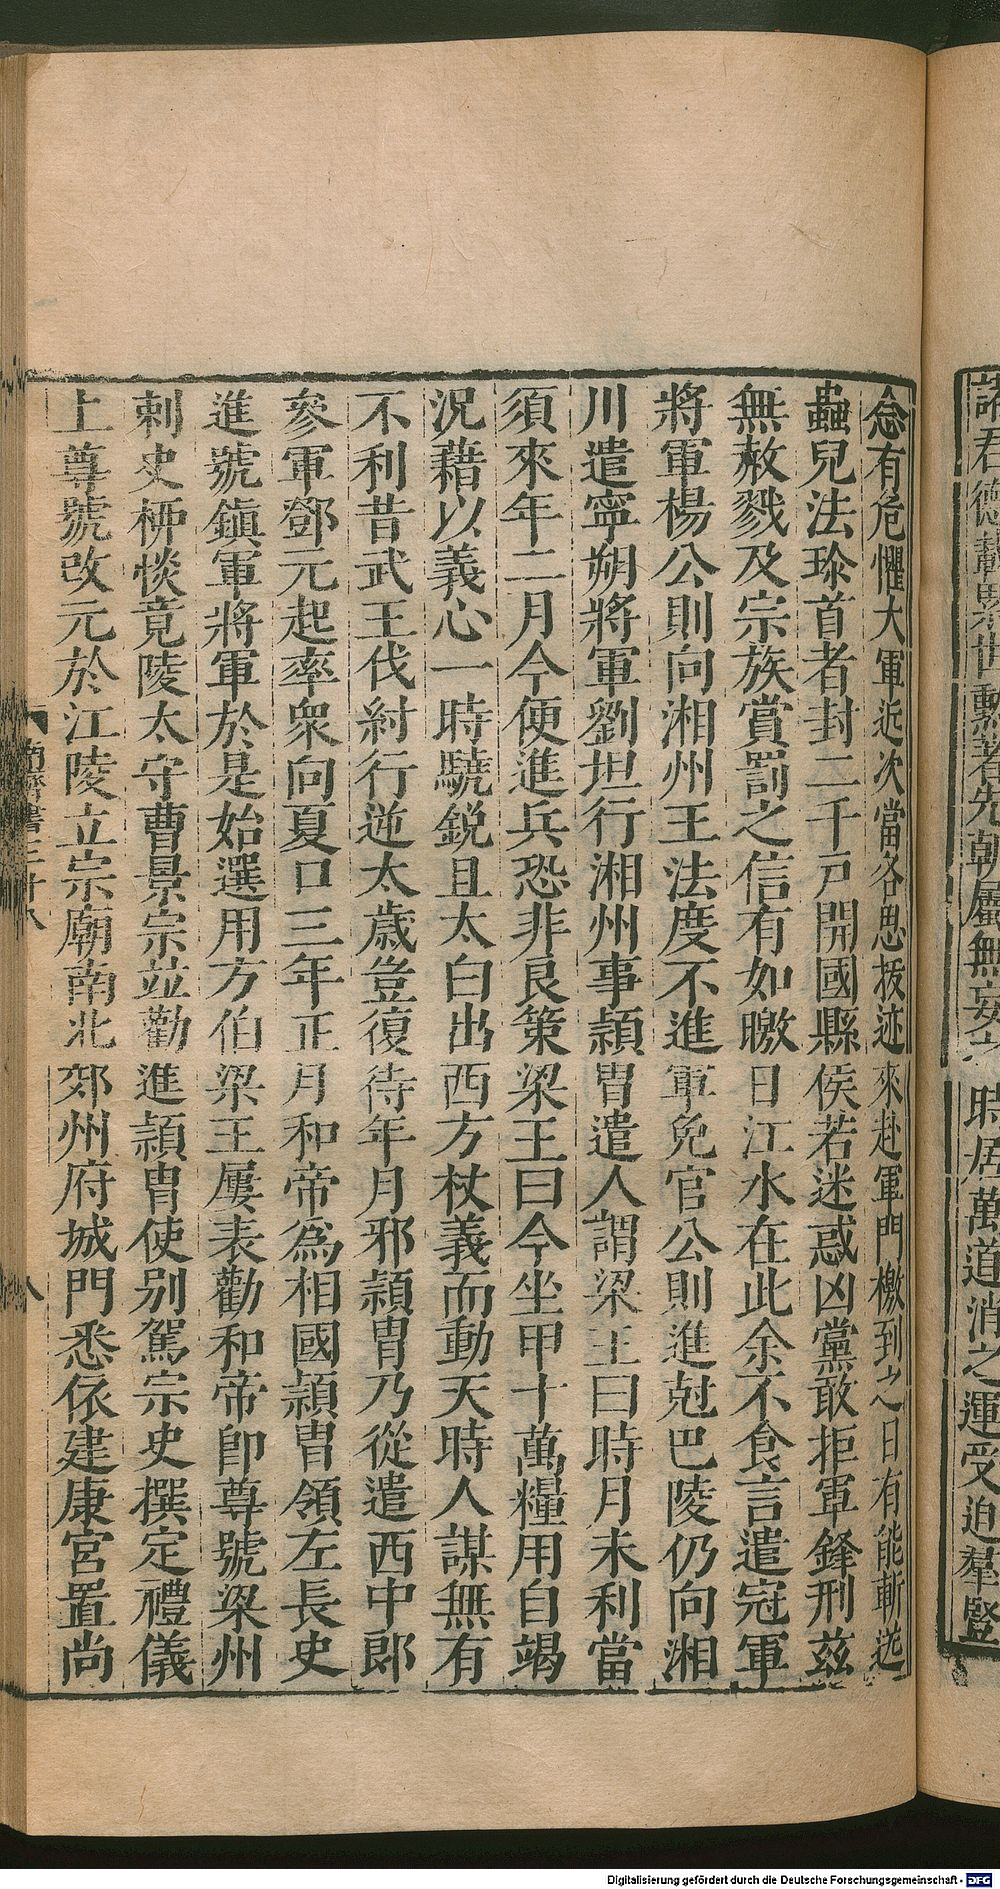 諸君德載累世勲著先朝屬無妄之時居萬道消之運受迫羣豎
念有危懼大軍近次當各思拔迹來赴軍門檄到之日有能斬送
蟲兒法珍首者封二千戸開國縣侯若迷惑凶黨敢拒軍鋒刑兹
無赦戮及宗族賞罰之信有如曒日江水在此余不食言遣冠軍
將軍楊公則向湘州王法度不進軍免官公則進尅巴陵仍向湘
川遣寧朔將軍劉坦行湘州事頴胄遣人謂梁王曰時月未利當
須來年二月今便進兵恐非良策梁王曰今坐甲十萬糧用自竭
況藉以義心一時驍鋭且太白出西方杖義而動天時人謀無有
不利昔武王伐紂行逆太歲豈復待年月邪頴胄乃從遣西中郎
參軍鄧元起率衆向夏口三年正月和帝爲相國頴胄領左長史
進號鎭軍將軍於是始選用方伯梁王屢表勸和帝卽尊號梁州
刺史柳惔竟陵太守曹景宗並勸進頴胄使别駕宗史撰定禮儀
上尊號改元於江陵立宗廟南北郊州府城門悉依建康宮置尚
南齊書三十八
八
Digitalisierung gefördert durch die Deutsche Forschungsgemeinschaft - DFG